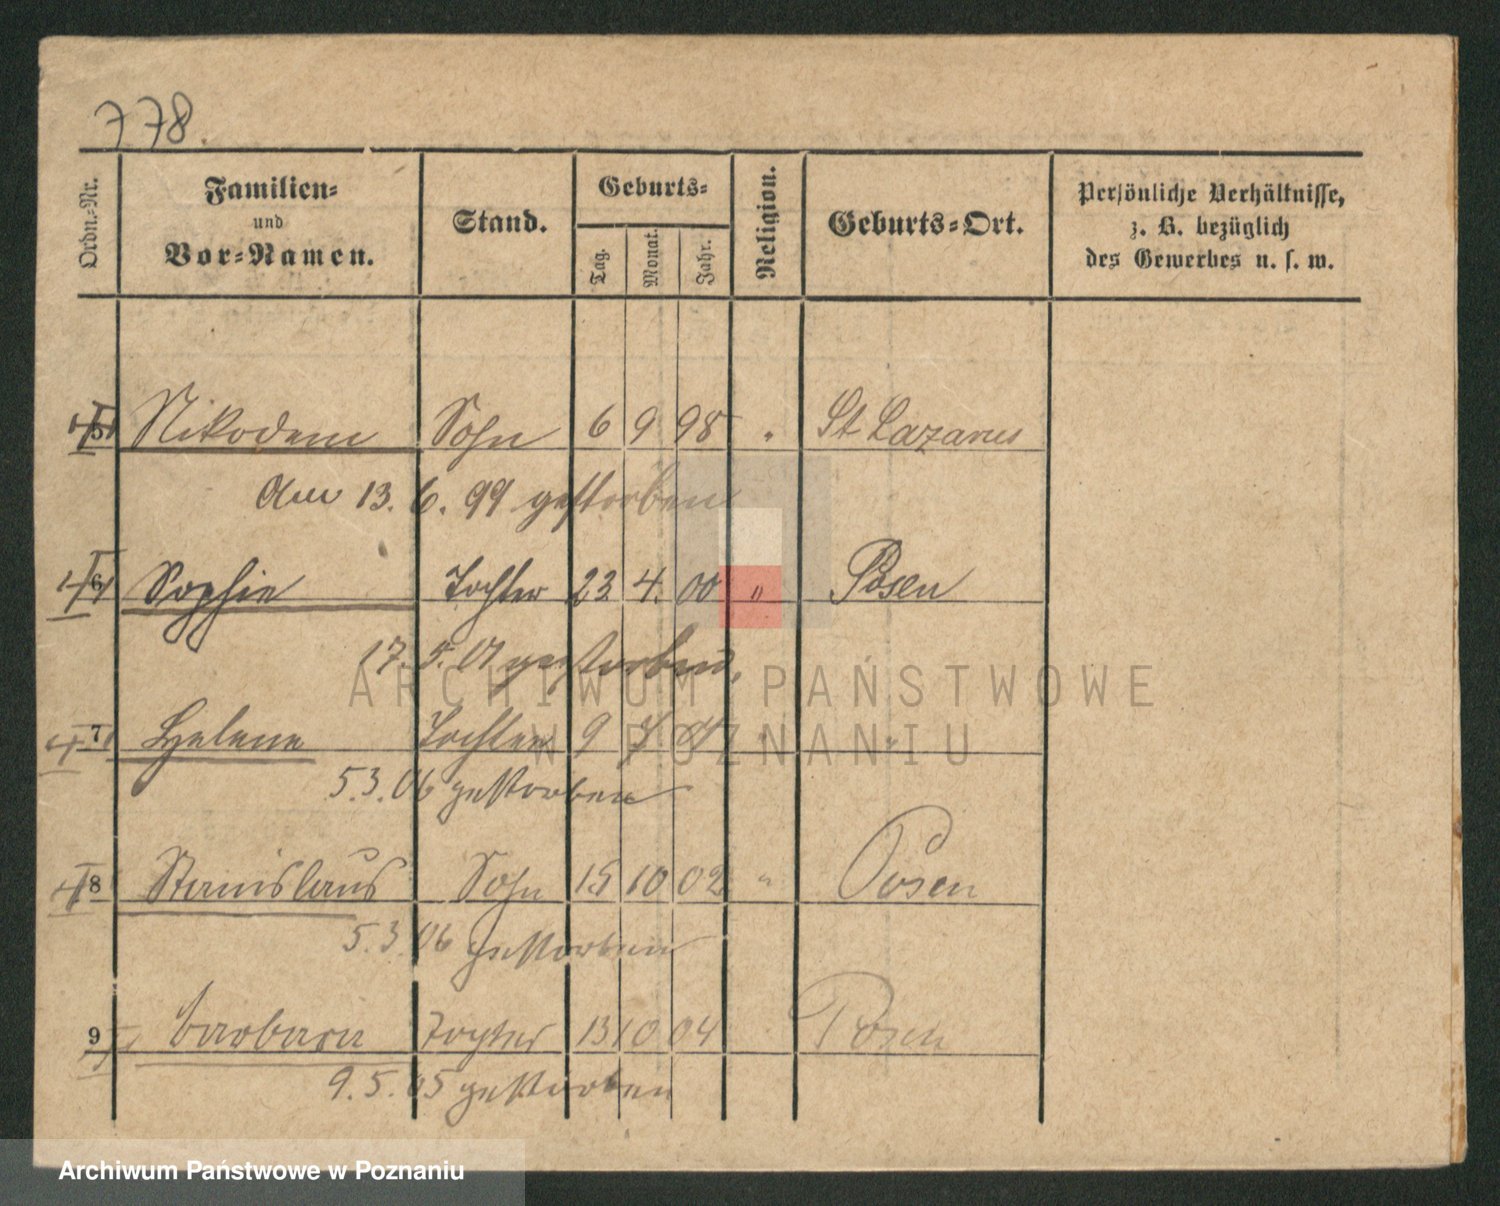 778.
Ordn.-Nr.
Familien-
und
Vor-Namen.
Stand.
Geburts-
Tag.
Monat.
Jahr.
Religion.
Geburts-Ort.
Persönliche Verhältnisse,
z. B. bezüglich
des Gewerbes u. s. w.
5 Nikodem Sohn 6 9 98 " St Lazarus
Am 13. 6. 99 gestorben
6 Sophie Tochter 23 4. 00 " Posen
17. 5. 01 gestorben,
ARCHIWUM PAŃSTWOWE
7 Helene Tochter 9 "
W POZNANIU
5.3.06 gestorben
8 Stanislaus Sohn 15 10 02 " Posen
5.3.06 gestorben
9 Barbara Tochter 13 10 04 Posen
9.5.05 gestorben
Archiwum Państwowe w Poznaniu